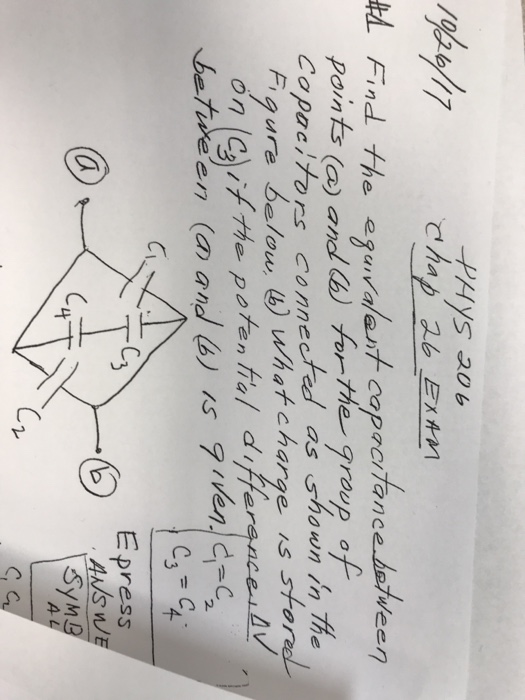 10/26/17
PHYS 206
Chap 26 EXAM
#1 Find the equivalent capacitance between
points (a) and (b) for the group of
capacitors connected as shown in the
Figure below. (b) What charge is stored
on (C3) if the potential difference ΔV
between (a) and (b) is given.
C1 = C2
C3 = C4
a
C1
C3
C4
C2
b
Epress
ANSWE
SYMB
AL
C1 C2